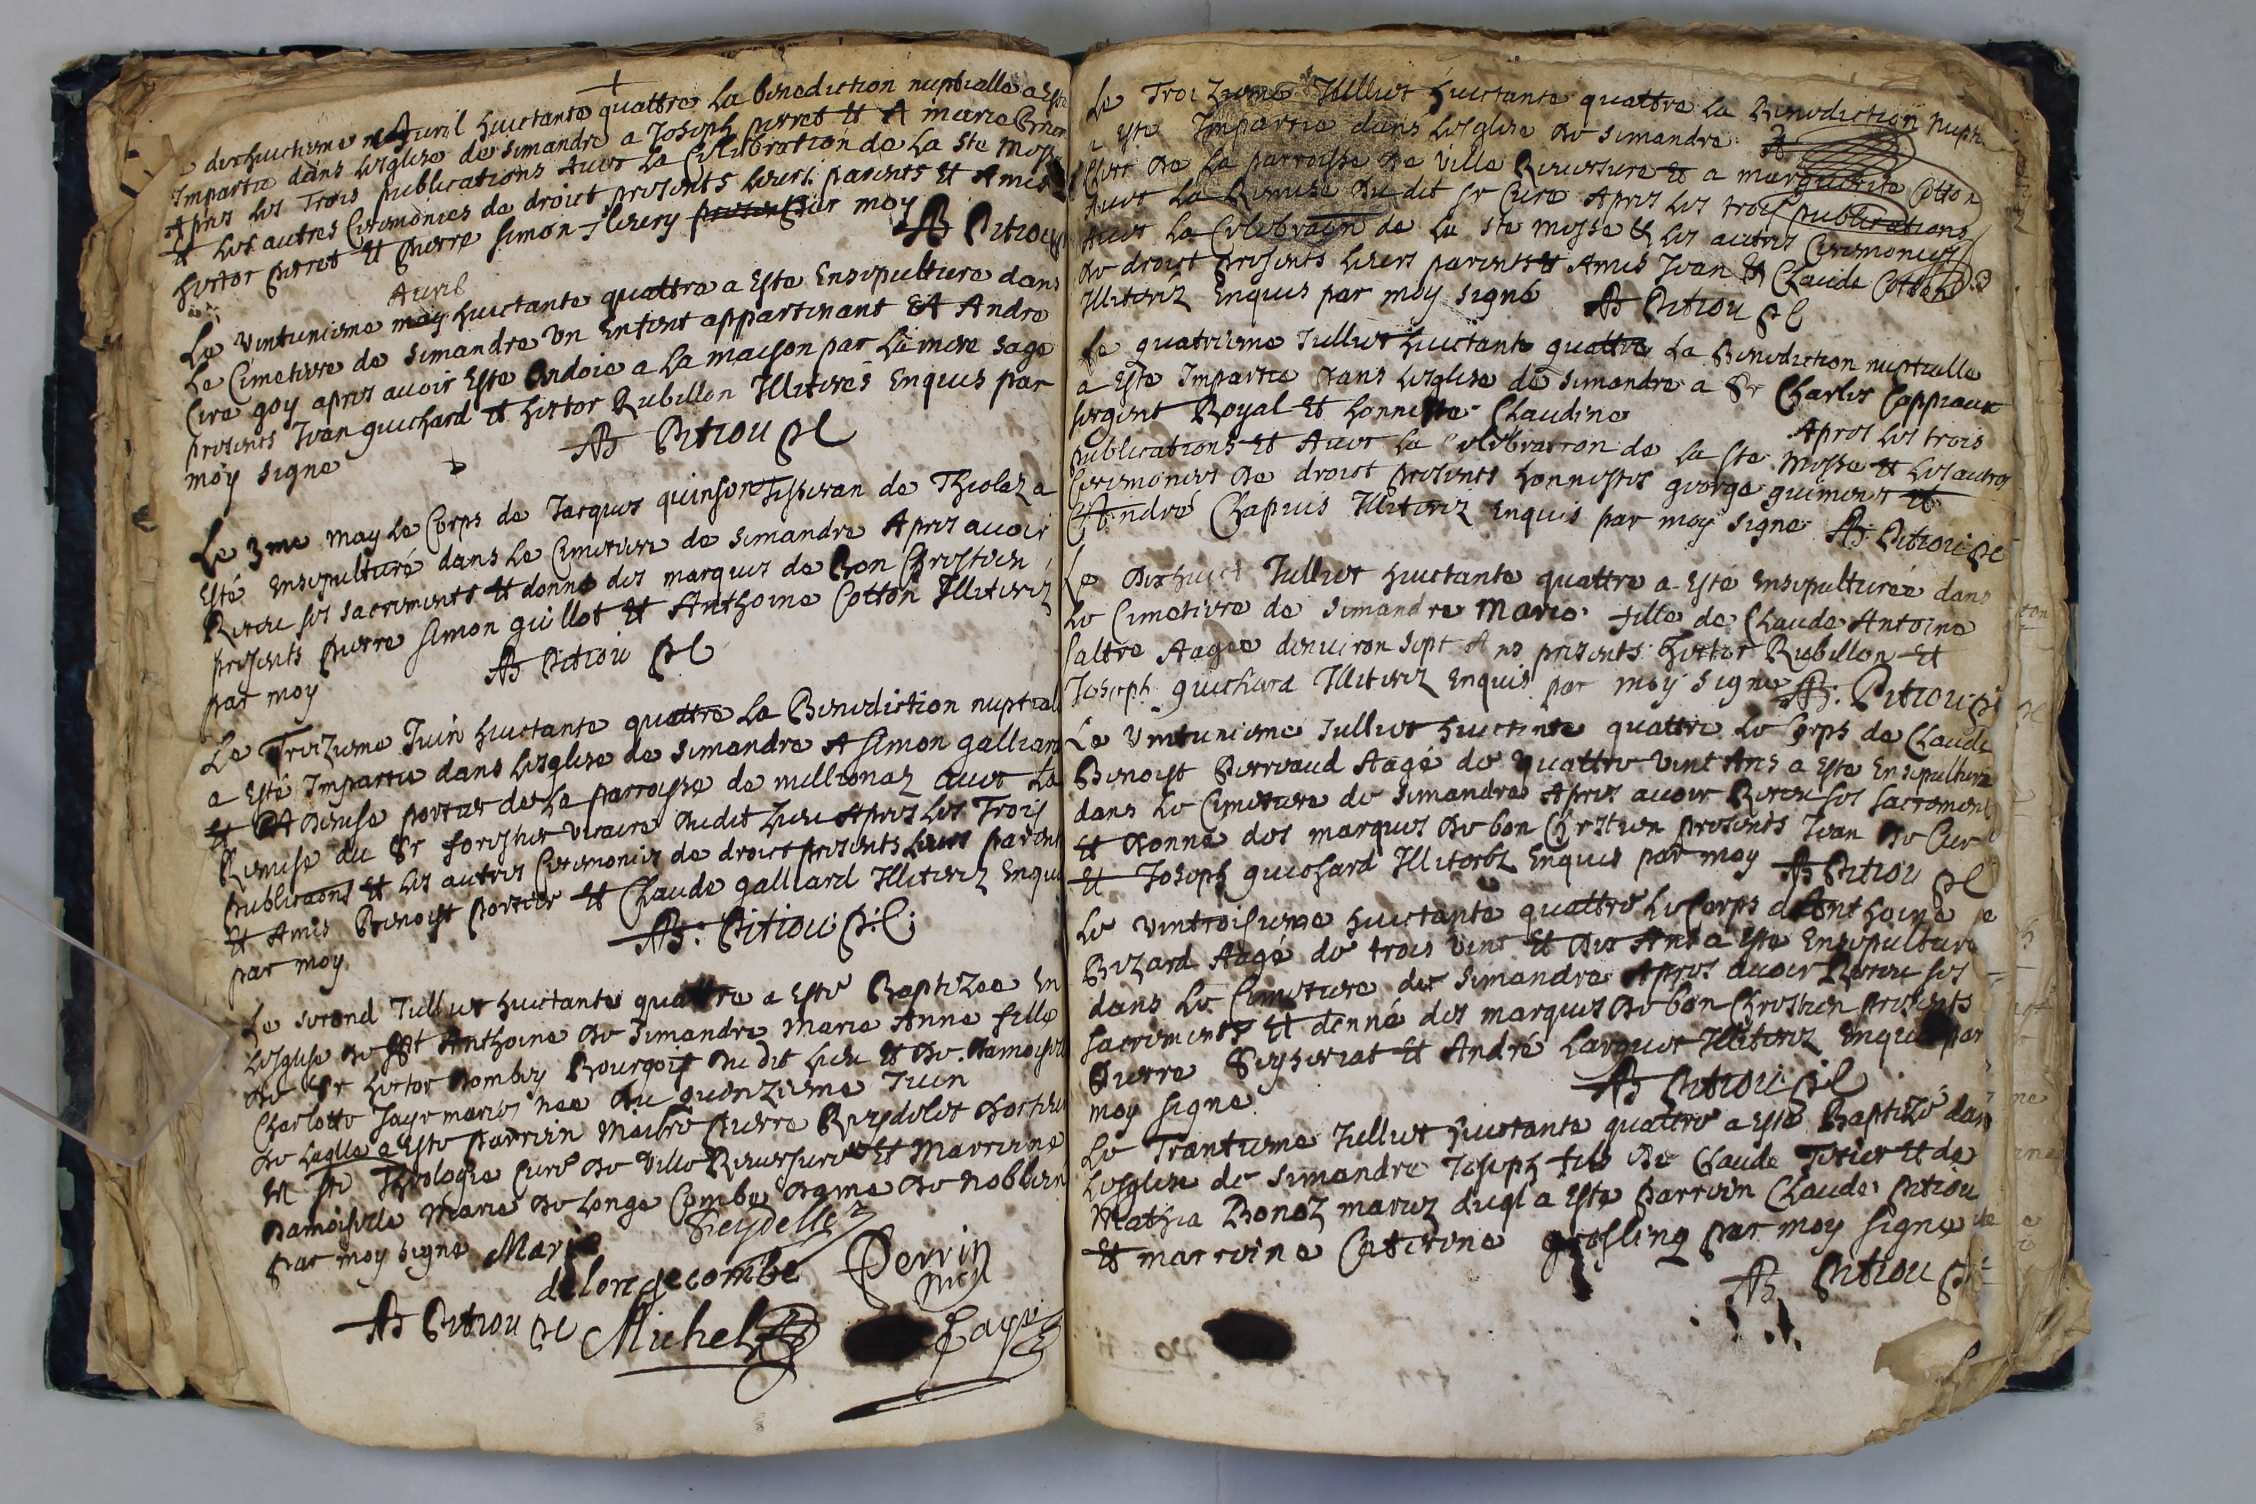 dixhuictieme Auril huictante quattre La benediction nuptialle a Este
Impartie dans Lesglize de Simandre a Joseph perret Et A marie
Apres Les Trois publications Auec La Celebration de La Ste Messe
Et Les autres Ceremonies de droict presents Leurs parents Et Amis
hector perret Et pierre simon fleury par moy
AB Pitiou
Auril
Le vintunieme may huictante quattre a Este Ensepulture dans
Le Cimetiere de Simandre Un Enfent appartenant Et A Andre
Cire goy apres auoir Este Ondoie a La maison par La mere sage
presents Jean guichard Et hector Rubillon Illiteres Enquis par
moy signe AB Pitiou pC
Le 3me may Le Corps de Jacques quinson Tisseran de Thiolez a
Esté Ensepulturé dans Le Cimetiere de Simandre Apres auoir
Receu ses sacrements Et donne des marques de Bon Chrestien
presents pierre simon guillot Et Anthoine Cotton Illiterez
par moy AB Pitiou pC
Le Treizieme Juin huictante quattre La Benediction nuptiall
a Esté Impartie dans Lesglize de Simandre A Simon galliard
Et A Denise portier de La parroisse de millionaz auec La
Remise du Sr forestier vicaire dudit Lieu Apres Les Trois
publicaons Et Les autres Ceremonies de droict presents Leurs parents
Et Amis Benoist portier Et Claude galliard Illiterez Enquis
par moy AB: Pitiou p:C:
Le second Juillet huictante quattre a Esté Baptizee En
Lesglise de St Anthoine de Simandre Marie Anne fille
de Sr hector Dombey Bourgois dudit Lieu Et de Damoiselle
Charlotte Jayr mariez nee du quinzieme Juin
de Laqlle a Este parrein Maitre pierre Reydelet docteur
En Ste Theologie Curé de Ville Reuersure Et Marreine
Damoiselle Marie de Longe Combe dame de nobblens
par moy signe Marie Reydellet
delongecombe Perrin
AB Pitiou pC Michel Jayr
Le Troizieme Juilliet huictante quattre La Benediction Nupti
a Este Impartie dans Lesglize de Simandre A
de La parroisse de Ville Reuersure Et a marguerite Cotton
Auec La Remise du dit Sr Cure Apres Les trois publications
Auec La Celebraon de La Ste Messe Et Les autres Ceremonies
de droict presents Leurs parents Et Amis Jean Et Claude Cotton
Illiterez Enquis par moy signé AB Pitiou pC
Le quatrieme Juilliet huictante quattre La Benediction nuptialle
a Este Impartie dans Lesglize de Simandre a Sr Charles Cappiaux
sergent Royal Et honneste Claudine Apres Les trois
publications Et Auec La Celebration de La Ste Messe Et Les autres
Ceremonies de droict presents honnestes george guimene Et
André Chapuis Illiterez Enquis par moy signe AB Pitiou pC
Le Dixhuict Juilliet huictante quattre a Esté Ensepulturée dans
Le Cimetiere de Simandre Marie fille de Claude Antoine
saltre Aagee denuiron sept Ans presents hector Rubillon Et
Joseph guichard Illiterez Enquis par moy signe AB: Pitiou pC
Le vintunieme Juilliet huictante quattre Le Corps de Claude
Benoist Perreaud Aagé de quattre vint Ans a Este Ensepulture
dans Le Cimetiere de Simandre Apres auoir Receu ses sacrements
Et donné des marques de bon Chrestien presents Jean de Cur
Et Joseph guichard Illiterez Enquis par moy AB Pitiou pC
Le vintroisieme huictante quattre Le Corps d'Anthoine
Bizard Aagé de trois vint Et dix Ans a Este Ensepulture
dans Le Cimetiere de Simandre Apres auoir Receu ses
sacrements Et donné des marques de bon Chrestien presents
Pierre Seyseriat Et André Larquet Illiterez Enquis par
moy signe AB Pitiou pC
Le Trantieme Juilliet huictante quattre a Este Baptizé dans
Lesglise de Simandre Joseph fils de Claude Tixier Et de
Mathia Bonaz mariez duql a Este parrein Claude Pitiou
Et marreine Caterine groslinq par moy signe
AB Pitiou pC